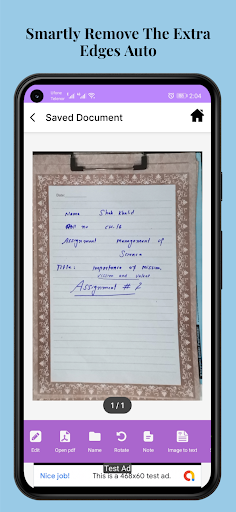 Smartly Remove The Extra
Edges Auto
2:04
Saved Document
Name Shah Khalid
no
Assignment Management of
Science
Title: importance of mission,
vission and
Assignment # 2
1/1
Edit Open pdf Name Rotate Note Image to text
Test Ad
Nice job! This is a 468x60 test ad.